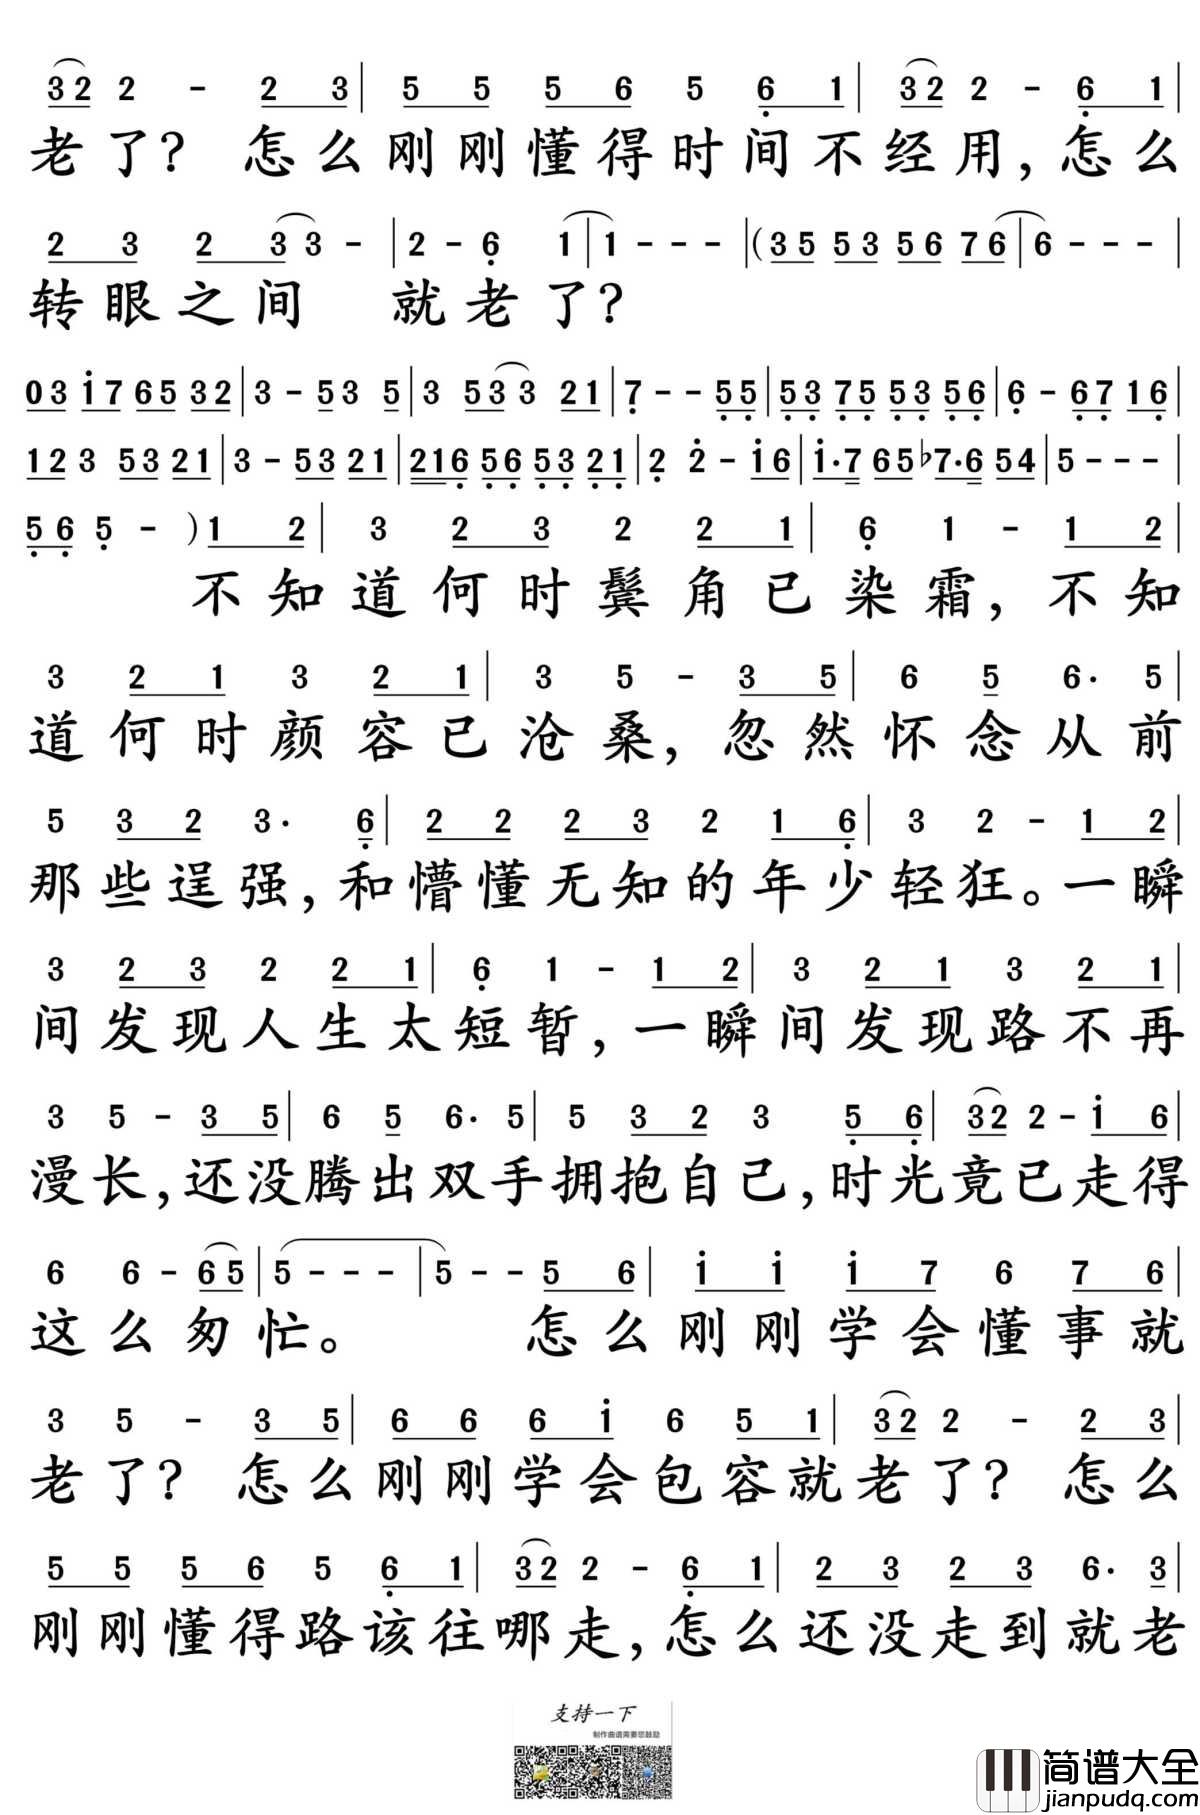 3 2 2 - 2 3 | 5 5 5 6 5 6̣ 1 | 3 2 2 - 6̣ 1 |
老了？ 怎么刚刚懂得时间不经用，怎么
2 3 2 3 3 - | 2 - 6̣ 1 | 1 - - - | ( 3 5 5 3 5 6 7 6 | 6 - - - |
转眼之间 就老了？
0 3 i 7 6 5 3 2 | 3 - 5 3 5 | 3 5 3 3 2 1 | 7̣ - - 5̣ 5̣ | 5̣ 3̣ 7̣ 5̣ 5̣ 3̣ 5̣ 6̣ | 6̣ - 6̣ 7̣ 1 6̣ |
1 2 3 5 3 2 1 | 3 - 5 3 2 1 | 2 1 6̣ 5̣ 6̣ 5̣ 3̣ 2̣ 1̣ | 2̣ 2̇ - i 6 | i · 7 6 5 ♭7 · 6 5 4 | 5 - - - |
5̣ 6̣ 5̣ - ) 1 2 | 3 2 3 2 2 1 | 6̣ 1 - 1 2 |
不知道何时鬓角已染霜，不知
3 2 1 3 2 1 | 3 5 - 3 5 | 6 5 6 · 5 |
道何时颜容已沧桑，忽然怀念从前
5 3 2 3 · 6̣ | 2 2 2 3 2 1 6̣ | 3 2 - 1 2 |
那些逞强，和懵懂无知的年少轻狂。一瞬
3 2 3 2 2 1 | 6̣ 1 - 1 2 | 3 2 1 3 2 1 |
间发现人生太短暂，一瞬间发现路不再
3 5 - 3 5 | 6 5 6 · 5 | 5 3 2 3 5̣ 6̣ | 3 2 2 - i 6 |
漫长，还没腾出双手拥抱自己，时光竟已走得
6 6 - 6 5 | 5 - - - | 5 - - 5 6 | i i i 7 6 7 6 |
这么匆忙。 怎么刚刚学会懂事就
3 5 - 3 5 | 6 6 6 i 6 5 1 | 3 2 2 - 2 3 |
老了？ 怎么刚刚学会包容就老了？ 怎么
5 5 5 6 5 6̣ 1 | 3 2 2 - 6̣ 1 | 2 3 2 3 6 · 3 |
刚刚懂得路该往哪走，怎么还没走到就老
支持一下
制作曲谱需要您鼓励
简谱大全
jianpudq.com